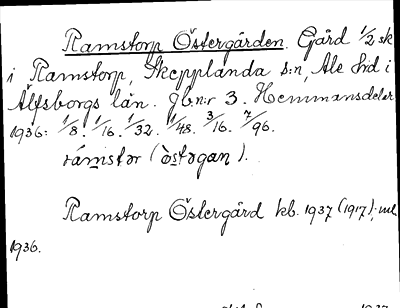 Ramstorp Östergården. Gård 1/2 sk
i Ramstorp, Skepplanda s:n, Ale hrd i
Älfsborgs län. Jb.n:r 3. Hemmansdelar
1936: 1/8. 1/16. 1/32. 1/48. 3/16. 7/96.
rámstər (òstəgan).
Ramstorp Östergård kb. 1937 (1917);
1936.